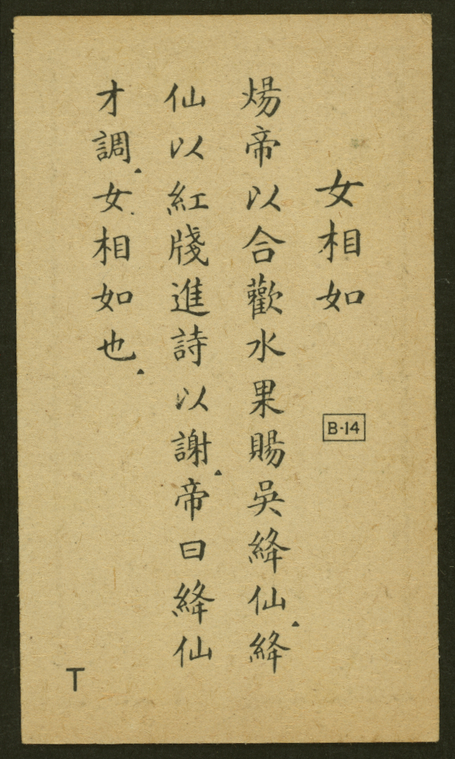 女相如
B-14
煬帝以合歡水果賜吳絳仙絳
仙以紅牋進詩以謝帝曰絳仙
才調女相如也
T